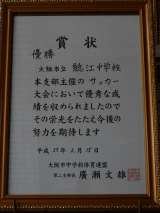 賞状
優勝
大阪市立 鯰江中学校
本支部主催の サッカー
大会において優秀な成
績を収められましたので
その栄光をたたえ今後の
努力を期待します
平成 年 月 日
大阪市中学校体育連盟
廣瀬文雄